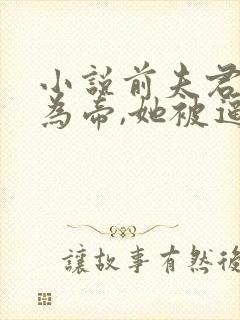 小說前夫君
為帝,她被逼
讓故事有然後